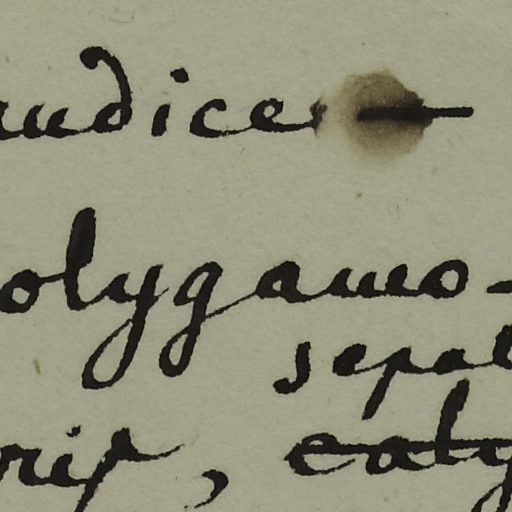 audice —
olygamo-
sepal
rip, caly